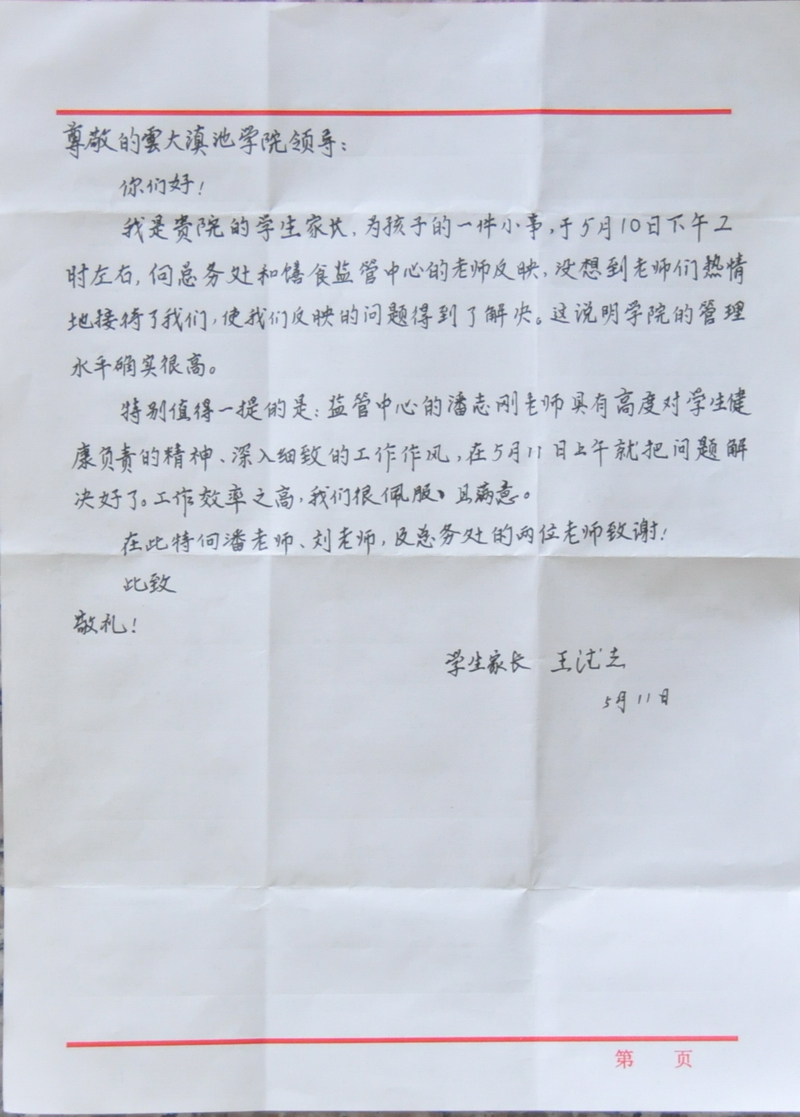 尊敬的雲大滇池学院领导：
你们好！
我是贵院的学生家长，为孩子的一件小事，于5月10日下午2
时左右，向总务处和膳食监管中心的老师反映，没想到老师们热情
地接待了我们，使我们反映的问题得到了解决。这说明学院的管理
水平确实很高。
特别值得一提的是：监管中心的潘志刚老师具有高度对学生健
康负责的精神、深入细致的工作作风，在5月11日上午就把问题解
决好了。工作效率之高，我们很佩服、且满意。
在此特向潘老师、刘老师，及总务处的两位老师致谢！
此致
敬礼！
学生家长 王
5月11日
第 页